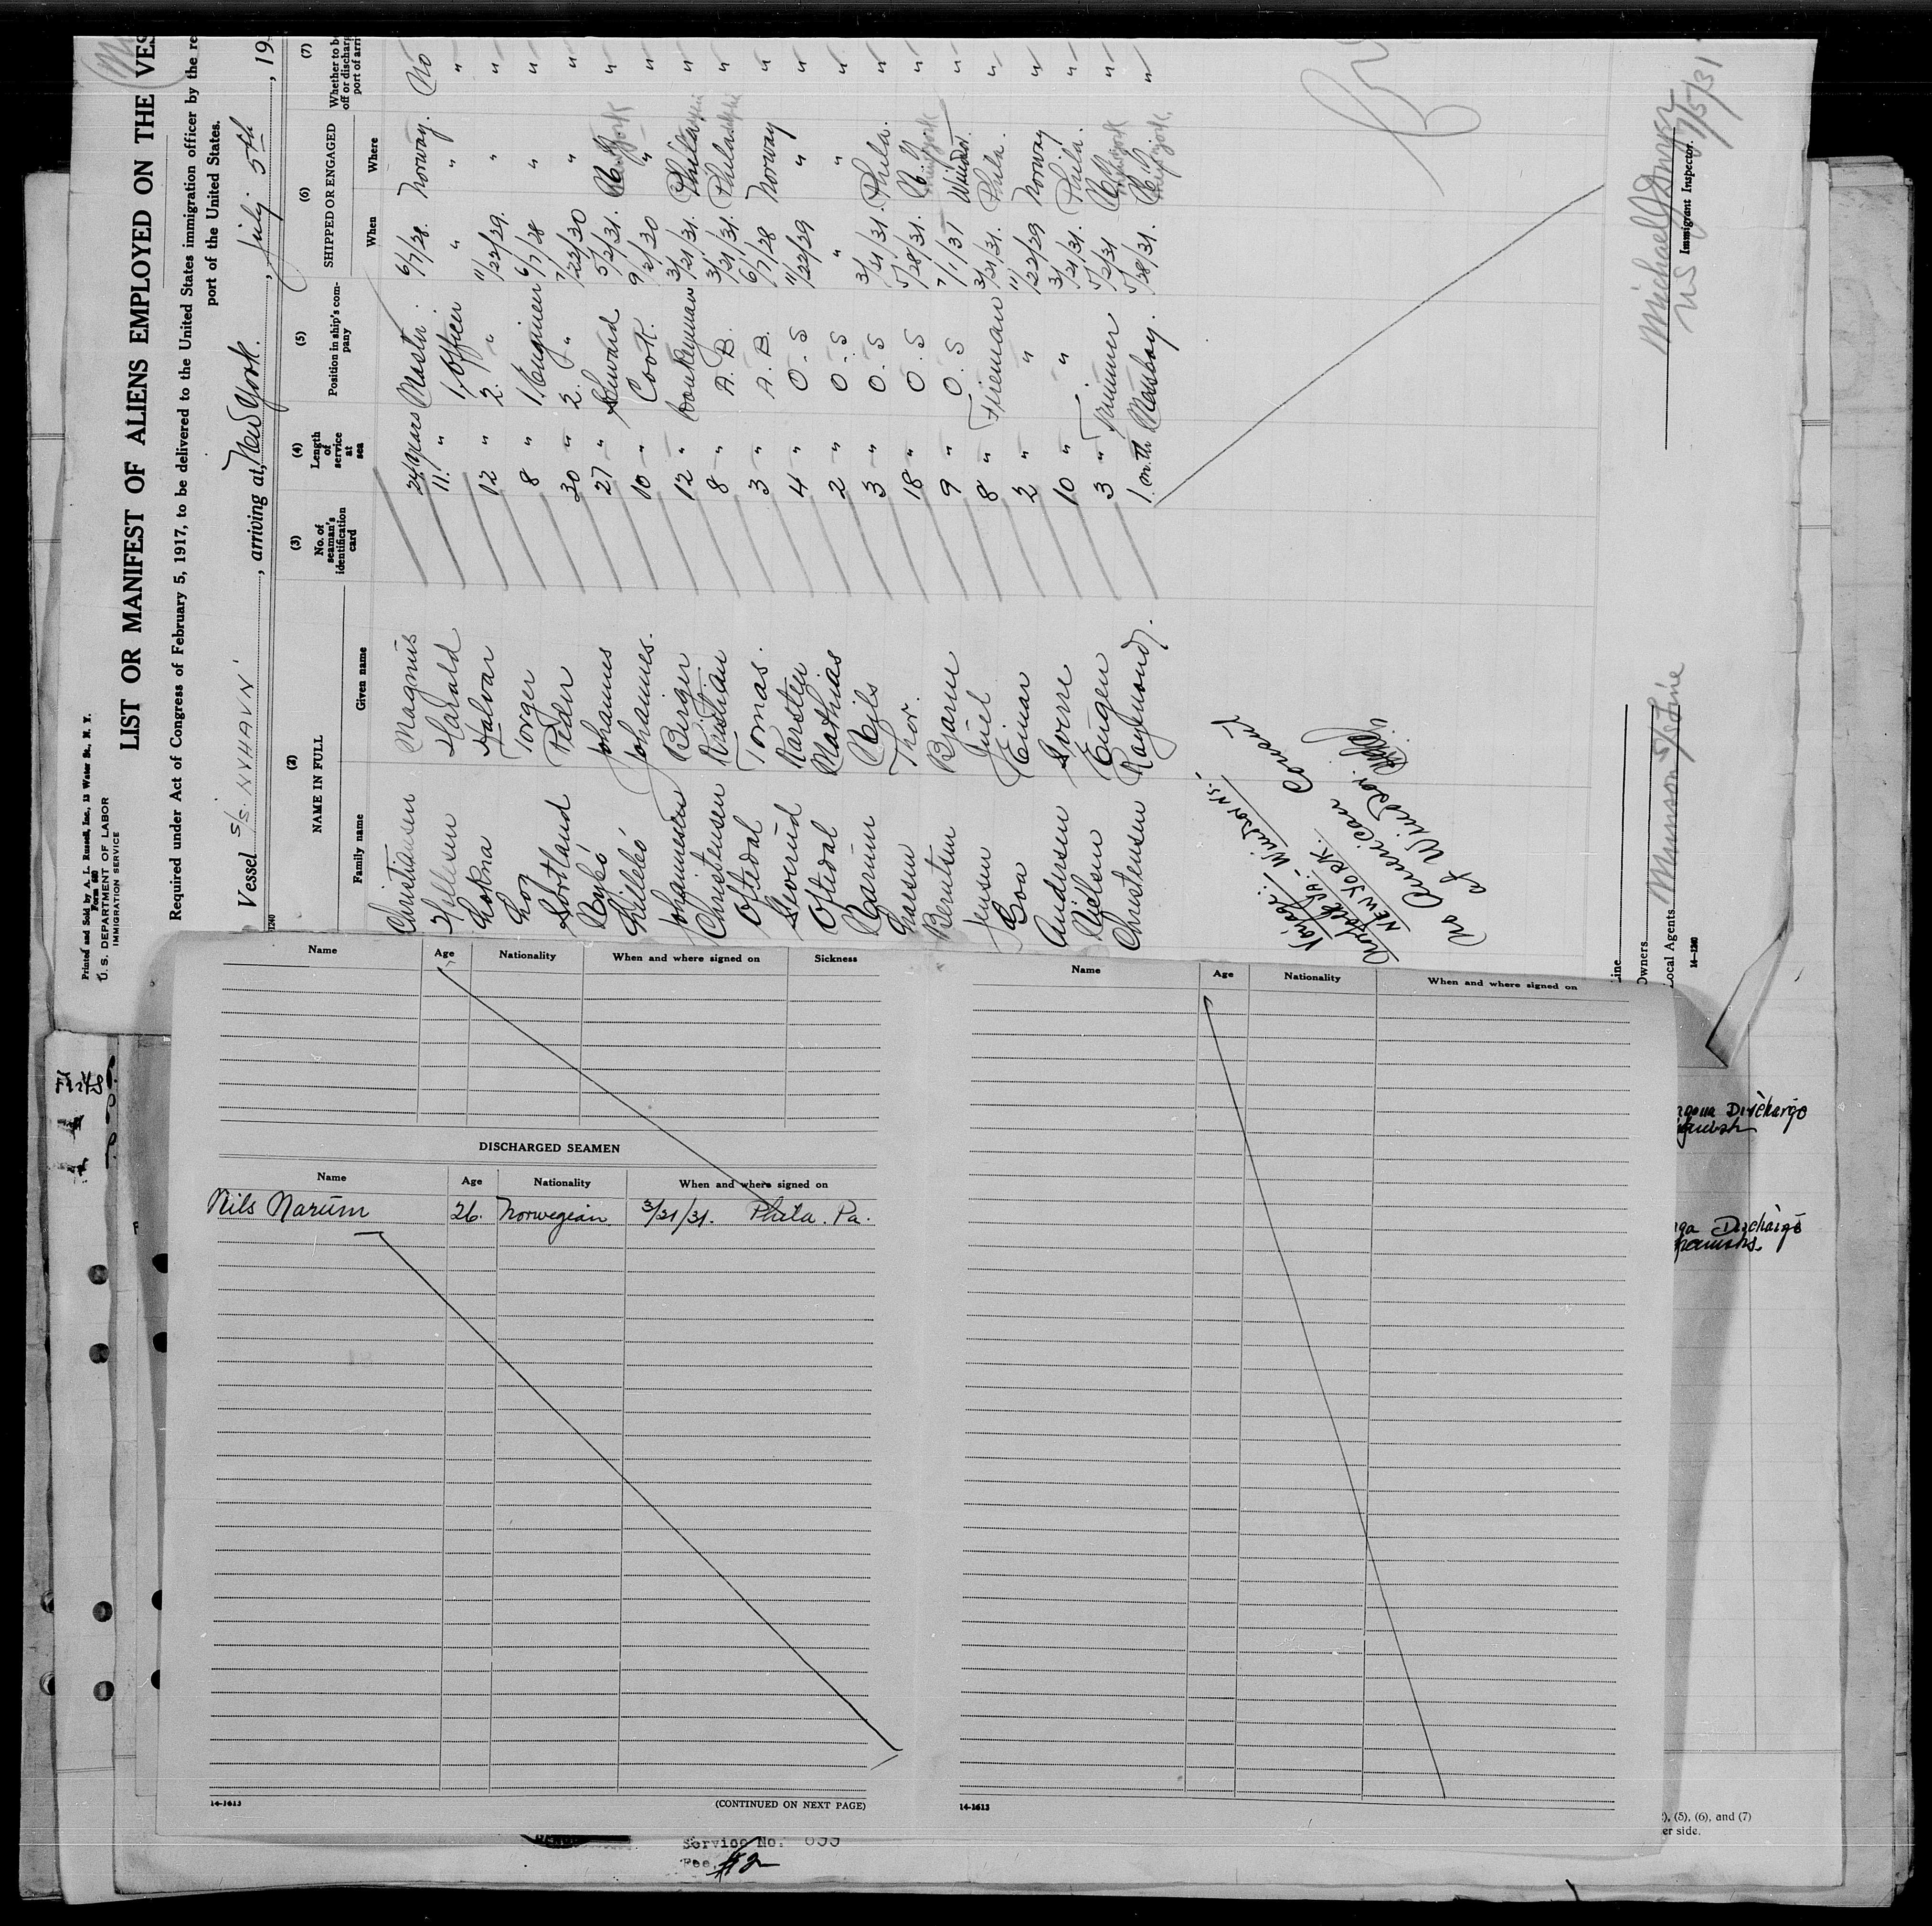 Printed and Sold by A. L. Russell, Inc., 13 Water St., N. Y.
Form 680
U. S. DEPARTMENT OF LABOR
IMMIGRATION SERVICE
LIST OR MANIFEST OF ALIENS EMPLOYED ON THE VES
Required under Act of Congress of February 5, 1917, to be delivered to the United States immigration officer by the re
port of the United States.
Vessel S/S. NYHAVN, arriving at, New York., July 5th, 19
1240
(2) (3) (4) (5) (6) (7)
NAME IN FULL No. of seaman's identification card Length of service at sea Position in ship's company SHIPPED OR ENGAGED Whether to b off or discharg port of arri
Family name Given name When Where
Christiansen Magnus 24 years Master. 6/7/28. Norway. No
Harald 11. " 1. Officer " " "
Halvar 12 " 2. " 11/22/29. " "
Torger 8 " 1. Engineer 6/7/28 " "
Sortland Peder 30 " 2. " 7/22/30 " "
Johannes 27 " Steward 5/2/31. N.Y. "
Lillebø Johannes. 10 " Cook. 9/2/30 " "
Johannesen Berger 12 " Donkeyman 3/21/31. Phila "
Christensen Kristian 8 " A. B. 3/21/31. Phila "
Oftedal Tomas. 3 " A. B. 6/7/28 Norway "
Karsten 4 " O. S 11/22/29 " "
Oftedal Mathias 2 " O. S " " "
Narum Nils 3 " O. S 3/21/31. Phila. "
Thor. 18 " O. S 5/28/31. N.Y. "
Berntsen Bjarne 9 " O. S 7/1/31 Windsor. "
Jensen Juel 8 " Fireman 3/21/31. Phila. "
Boa Einar 2 " " 11/22/29 Norway "
Andersen Sverre 10 " " 3/21/31. Phila. "
Nielsen Eugen 3 " Trimmer 5/2/31 N.Y. "
Christensen Raymond. 1 mth Messboy. 5/28/31. N.Y. "
Voyage:- Windsor N.S.,
Norfolk VA. -
NEW YORK.
No American Consul
at Windsor.
Line
Owners
Local Agents Munson S/S Line
14-1240
Immigrant Inspector.
7/5/31
Name Age Nationality When and where signed on Sickness
DISCHARGED SEAMEN
Name Age Nationality When and where signed on
Nils Narum 26. Norwegian 3/21/31. Phila. Pa.
14-1613
(CONTINUED ON NEXT PAGE)
Name Age Nationality When and where signed on
14-1613
Discharge
Discharge
), (5), (6), and (7)
er side.
Service No.
Fee $2